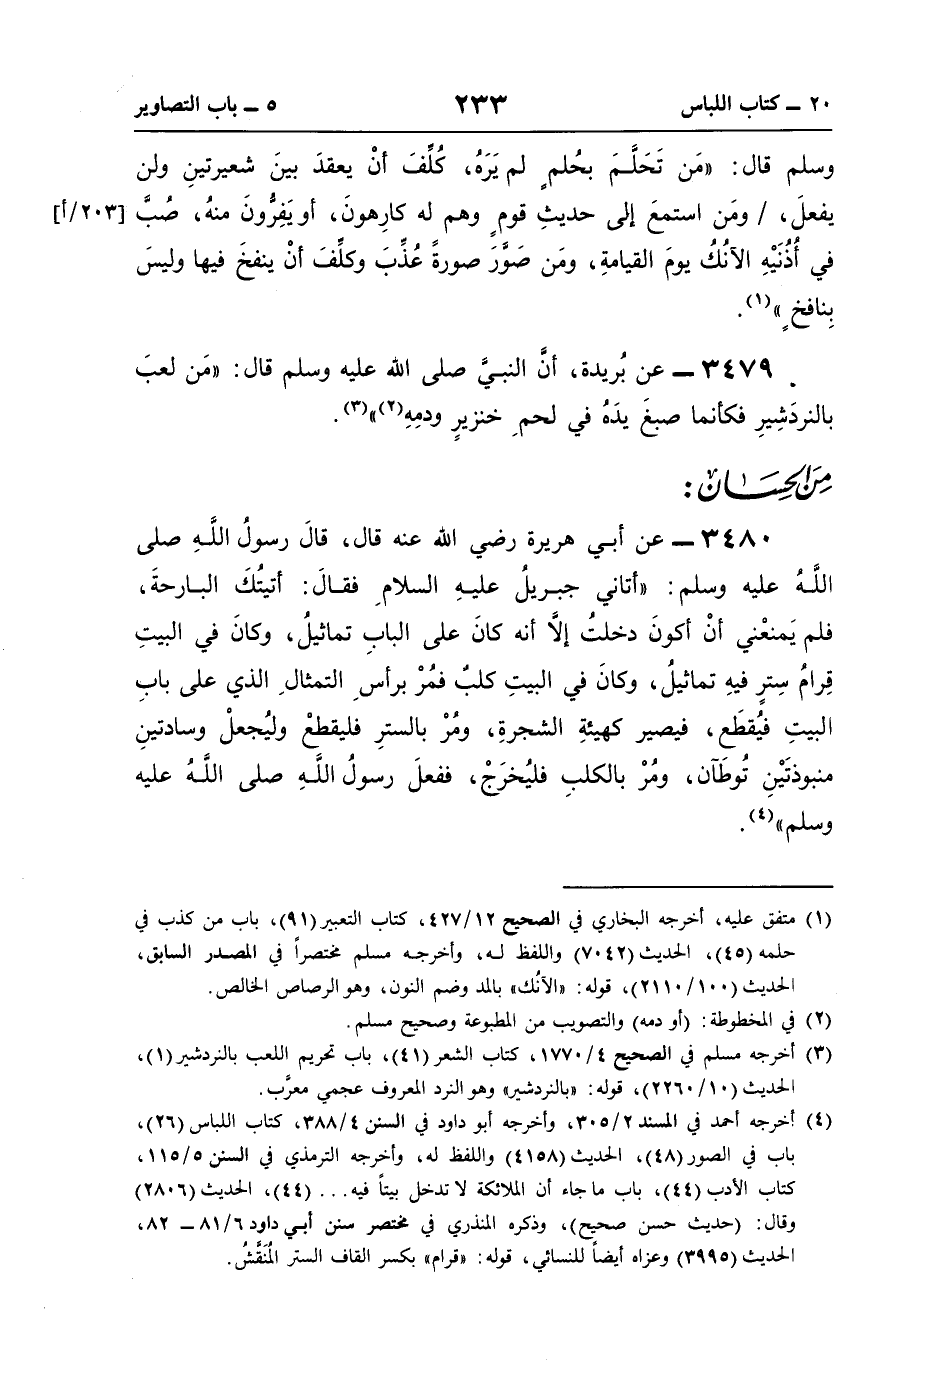 ٢٠ ـ كتاب اللباس ٢٣٣ ٥ ـ باب التصاوير
وسلم قال: «مَن تَحَلَّمَ بحُلمٍ لم يَرَهُ، كُلِّفَ أنْ يعقدَ بينَ شعيرتينِ ولن
يفعلَ، / ومَن استمعَ إلى حديثِ قومٍ وهم له كارِهونَ، أو يَفِرُّونَ منهُ، صُبَّ [٢٠٣/أ]
في أُذُنَيْهِ الآنُكُ يومَ القيامةِ، ومَن صَوَّرَ صورةً عُذِّبَ وكلِّفَ أنْ ينفخَ فيها وليسَ
بِنافخٍ»(١).
٣٤٧٩ ـ عن بُريدة، أنَّ النبيَّ صلى الله عليه وسلم قال: «مَن لعبَ
بالنردَشِيرِ فكأنما صبغَ يدَهُ في لحمِ خنزيرٍ ودمِهِ(٢)»(٣).
مِنَ الحِسَان:
٣٤٨٠ ـ عن أبي هريرة رضي الله عنه قال، قالَ رسولُ اللَّهِ صلى
اللَّهُ عليه وسلم: «أتاني جبريلُ عليهِ السلامِ فقالَ: أتيتُكَ البارحةَ،
فلم يَمنعْني أنْ أكونَ دخلتُ إلَّا أنه كانَ على البابِ تماثيلُ، وكانَ في البيتِ
قِرامُ سِترٍ فيهِ تماثيلُ، وكانَ في البيتِ كلبٌ فمُرْ برأسِ التمثالِ الذي على بابِ
البيتِ فيُقطَع، فيصير كهيئةِ الشجرةِ، ومُرْ بالسترِ فليقطعْ وليُجعلْ وسادتينِ
منبوذتَيْنِ تُوطَآن، ومُرْ بالكلبِ فليُخرَجْ، ففعلَ رسولُ اللَّهِ صلى اللَّهُ عليه
وسلم»(٤).
(١) متفق عليه، أخرجه البخاري في الصحيح ٤٢٧/١٢، كتاب التعبير (٩١)، باب من كذب في
حلمه (٤٥)، الحديث (٧٠٤٢) واللفظ له، وأخرجه مسلم مختصراً في المصدر السابق،
الحديث (٢١١٠/١٠٠)، قوله: «الآنُك» بالمد وضم النون، وهو الرصاص الخالص.
(٢) في المخطوطة: (أو دمه) والتصويب من المطبوعة وصحيح مسلم.
(٣) أخرجه مسلم في الصحيح ١٧٧٠/٤، كتاب الشعر (٤١)، باب تحريم اللعب بالنردشير (١)،
الحديث (٢٢٦٠/١٠)، قوله: «بالنردشير» وهو النرد المعروف عجمي معرَّب.
(٤) أخرجه أحمد في المسند ٣٠٥/٢، وأخرجه أبو داود في السنن ٣٨٨/٤، كتاب اللباس (٢٦)،
باب في الصور (٤٨)، الحديث (٤١٥٨) واللفظ له، وأخرجه الترمذي في السنن ١١٥/٥،
كتاب الأدب (٤٤)، باب ما جاء أن الملائكة لا تدخل بيتاً فيه... (٤٤)، الحديث (٢٨٠٦)
وقال: (حديث حسن صحيح)، وذكره المنذري في مختصر سنن أبي داود ٨١/٦ ـ ٨٢،
الحديث (٣٩٩٥) وعزاه أيضاً للنسائي، قوله: «قرام» بكسر القاف الستر المُنَقَّشُ.